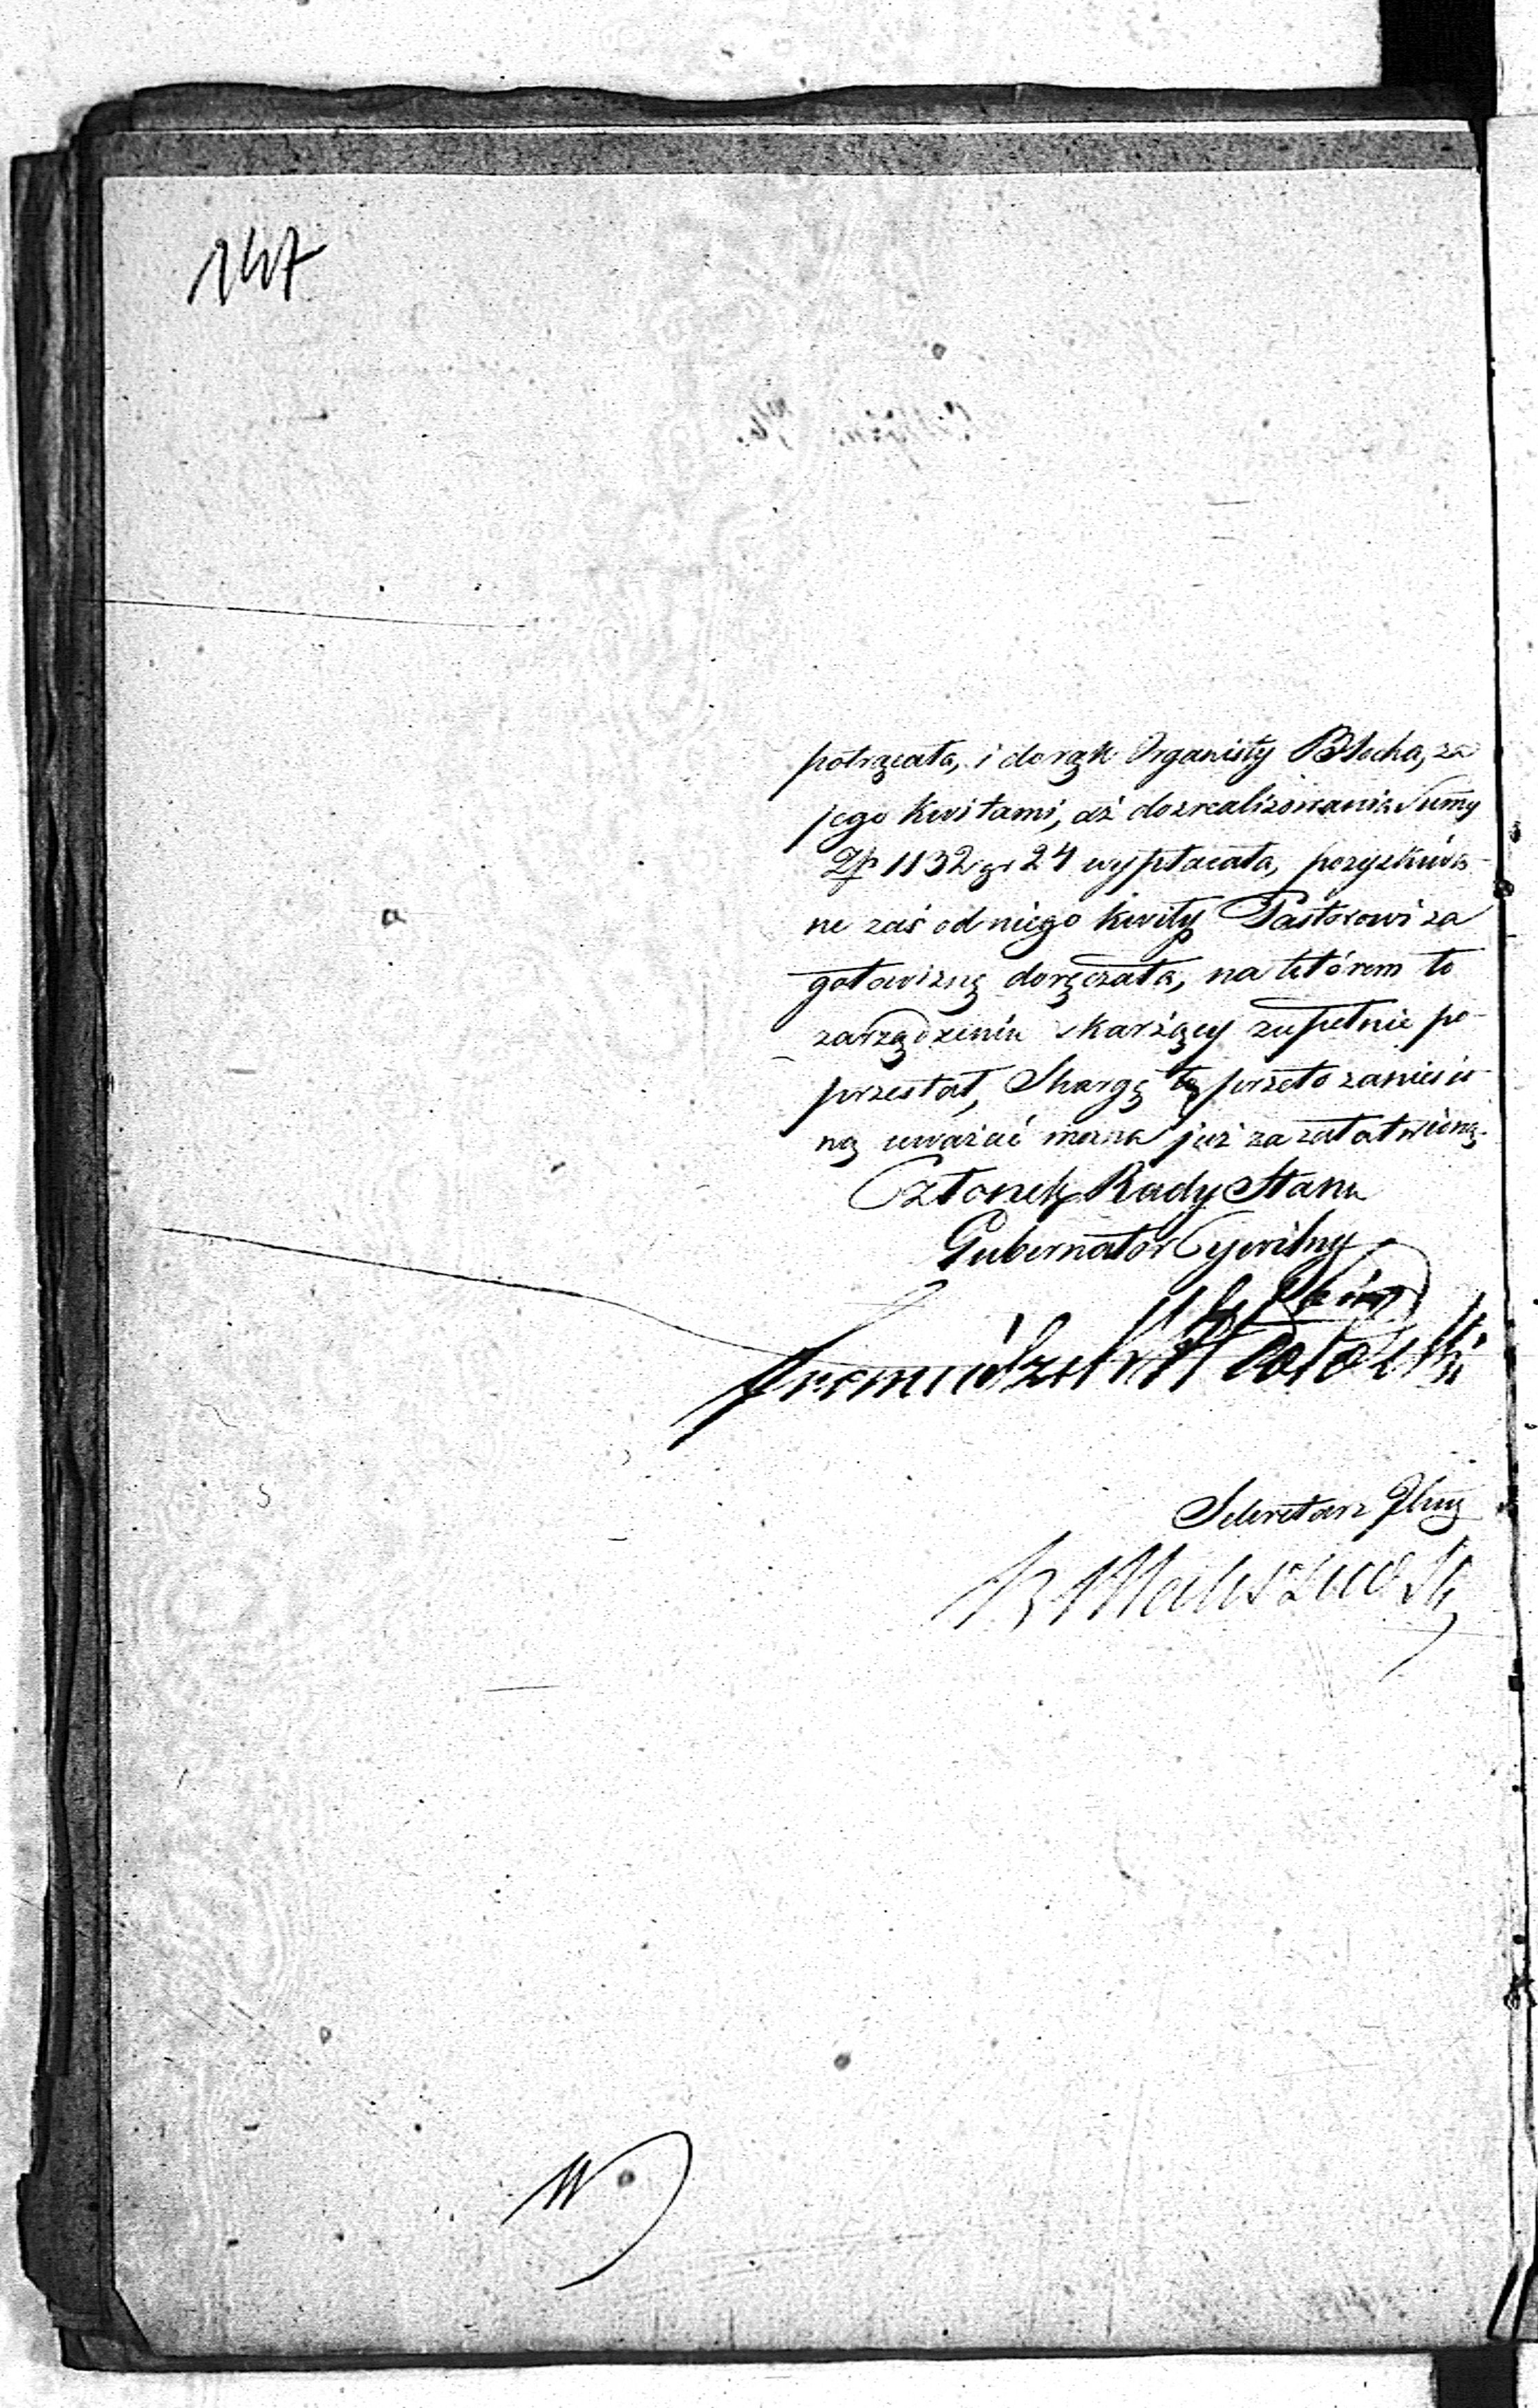 147
potrącała, i do rąk Organisty Blocha, za
jego kwitami, aż do zrealizowania Summy
Zp 1132 gr 24 wypłacała, pozyskiwa-
ne zaś od niego kwity Pastorowi za
gotowiznę doręczała, na którém to
zarządzeniu skarżący zupełnie po-
przestał, Skargę tę przeto zaniesio-
ną uważać można już za załatwioną.
Członek Rady Stanu
Gubernator Cywilny
Sekretarz Jlny